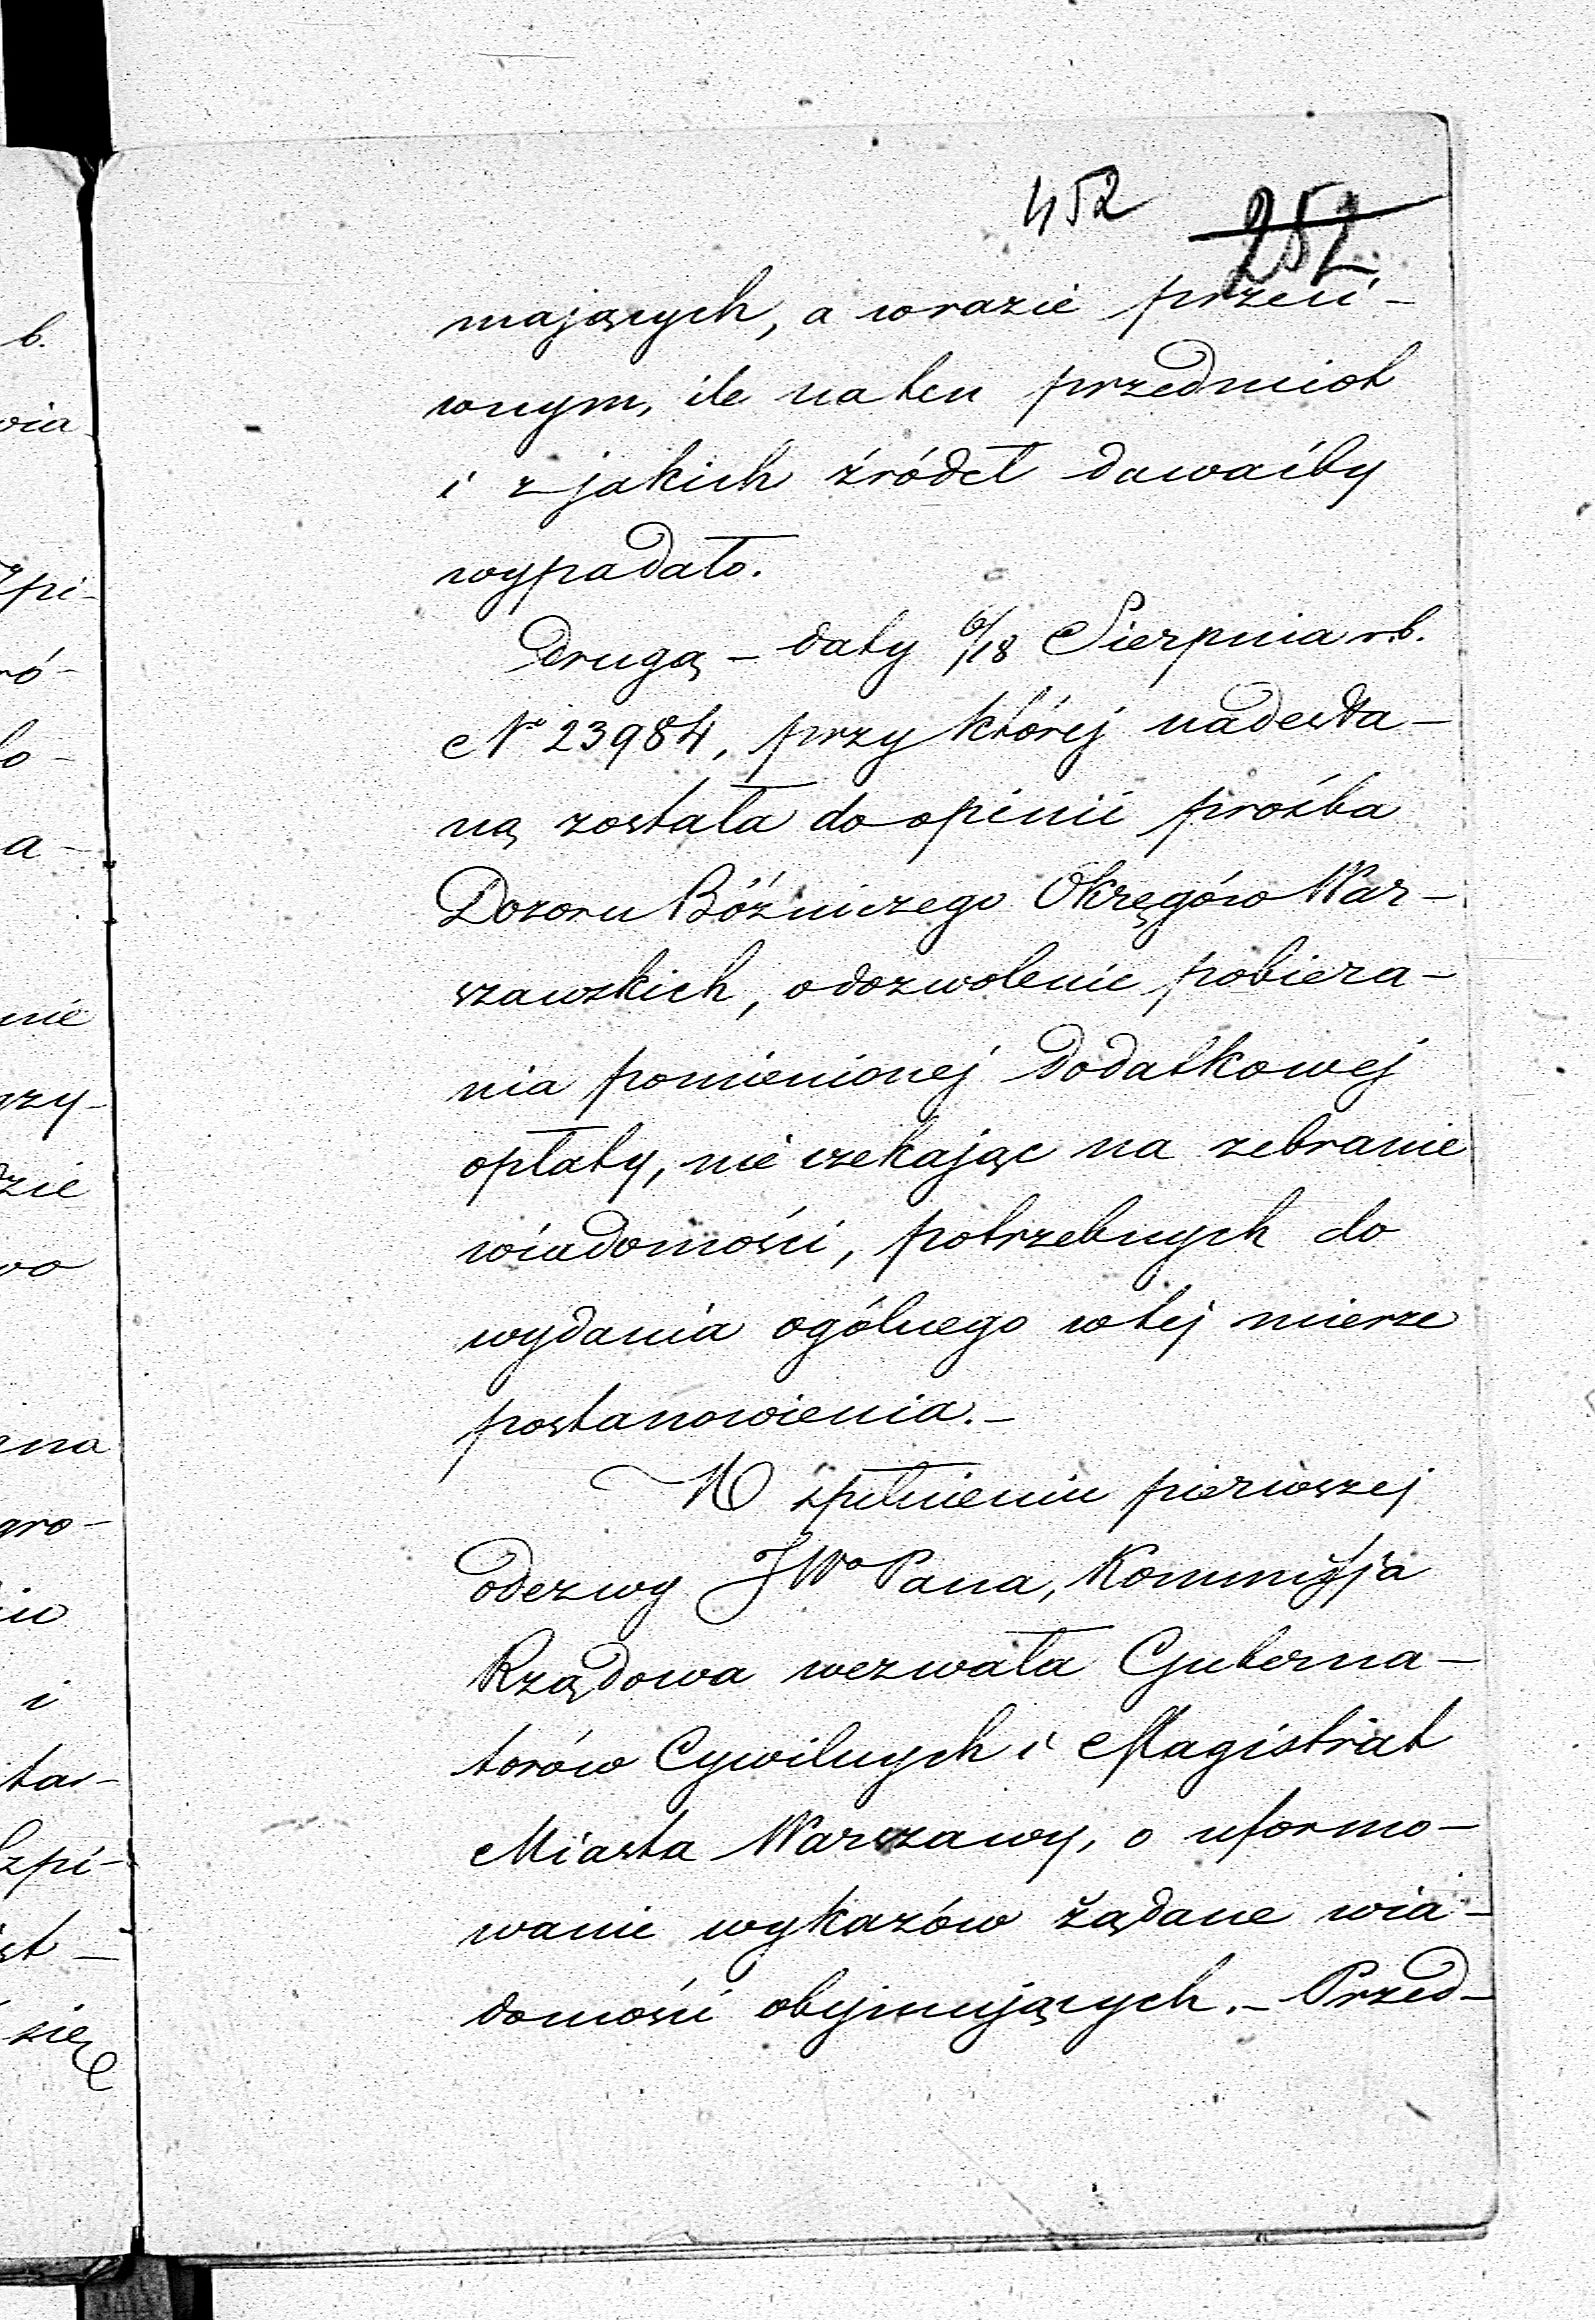 452 252.
mających, a w razie przeci-
wnym, ile na ten przedmiot
i z jakich źródeł dawaćby
wypadało.
Drugą – daty 6/18 Sierpnia r.b.
No 23984, przy której nadesła-
ną została do opinii prośba
Dozoru Bóźniczego Okręgów War-
szawskich, o dozwolenie pobiera-
nia pomienionej dodatkowej
opłaty, nie czekając na zebranie
wiadomości, potrzebnych do
wydania ogólnego w tej mierze
postanowienia. –
W spełnieniu pierwszej
odezwy JWo Pana, Kommissja
Rządowa wezwała Guberna-
torów Cywilnych i Magistrat
Miasta Warszawy, o uformo-
wanie wykazów żądane wia-
domości obejmujących. – Przed-
b.
wia
Szpi-
ró-
ło-
a-
nie
rzy-
dzie
wo
ana
gro-
iu
i
tar-
Szpi-
st-
się